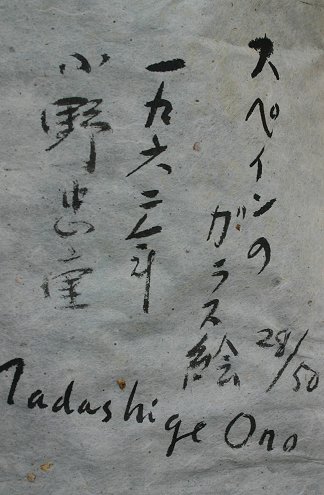 スペインの
ガラス絵
28/50
一九六二年
小野忠重
Tadashige Ono